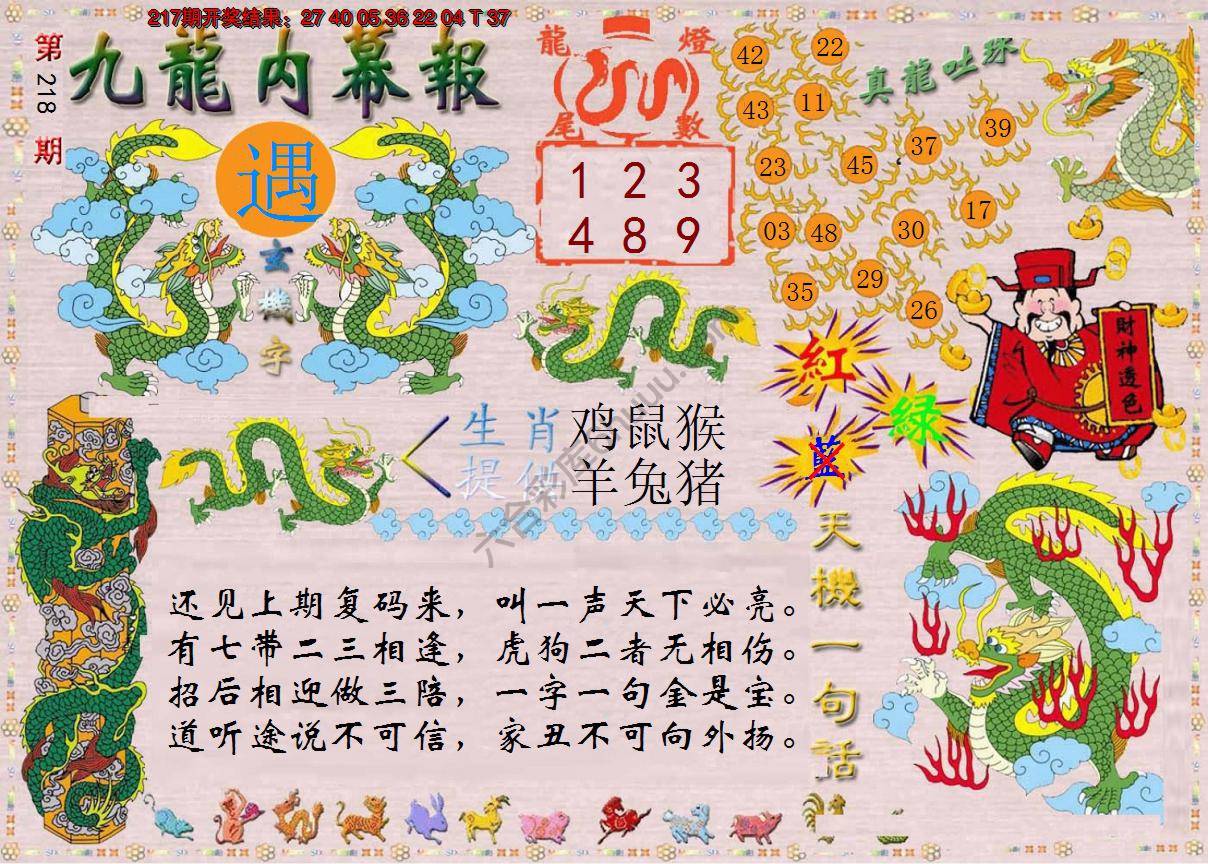 217期开奖结果：27 40 05 36 22 04 T 37
第218期
九龍内幕報
遇
玄機字
龍燈
尾數
1 2 3
4 8 9
真龍吐珠
42 22
43 11
23 45 37 39
03 48 30 17
35 29 26
財神透色
紅
綠
藍
生肖 鸡鼠猴
提供 羊兔猪
天機一句話
还见上期复码来，叫一声天下必亮。
有七带二三相逢，虎狗二者无相伤。
招后相迎做三陪，一字一句金是宝。
道听途说不可信，家丑不可向外扬。